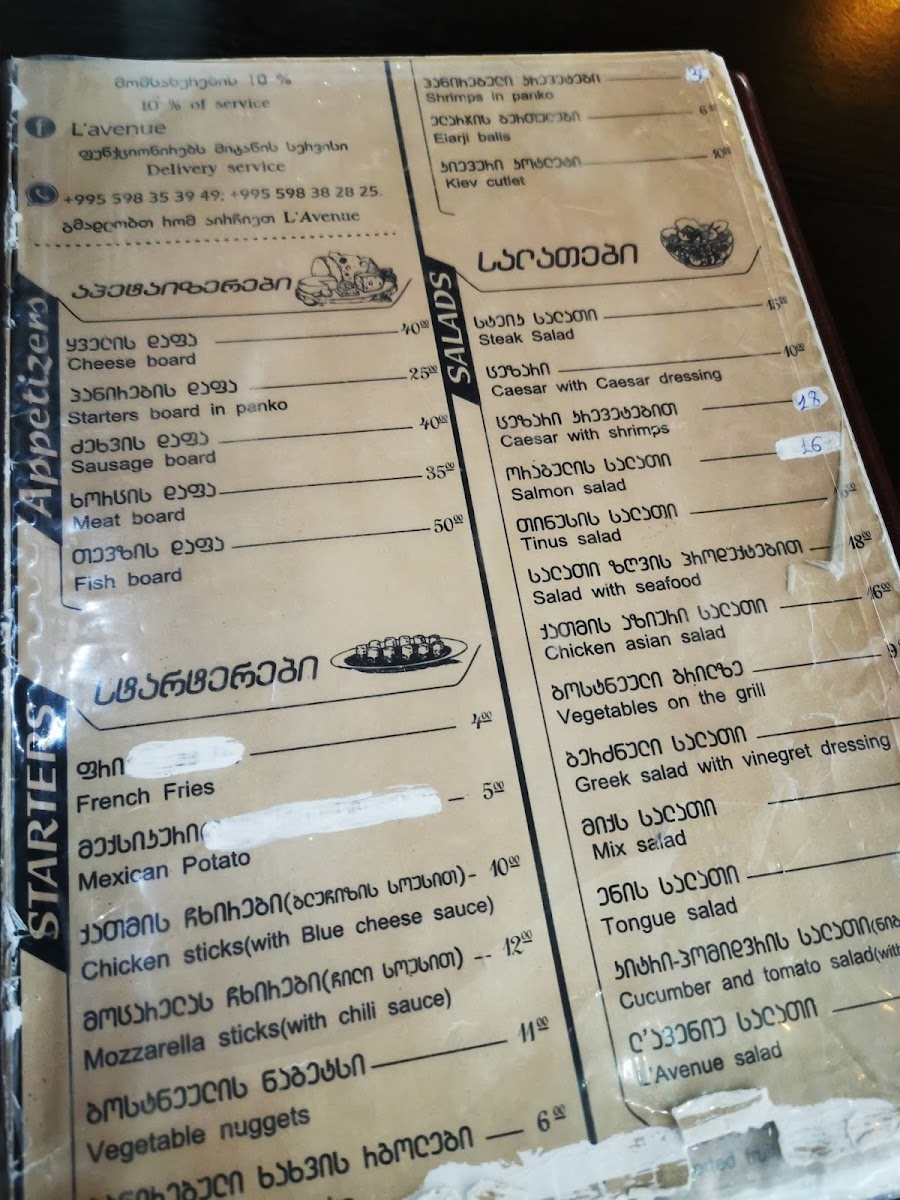 მომსახურების 10 %
10 % of service
L'avenue
ფუნქციონირებს მიტანის სერვისი
Delivery service
+995 598 35 39 49; +995 598 38 28 25.
გმადლობთ რომ აირჩიეთ L'Avenue
Appetizers
აპეტაიზერები
ყველის დაფა 40⁰⁰
Cheese board
პანირების დაფა 25⁰⁰
Starters board in panko
ძეხვის დაფა 40⁰⁰
Sausage board
ხორცის დაფა 35⁰⁰
Meat board
თევზის დაფა 50⁰⁰
Fish board
STARTERS
სტარტერები
ფრი 4⁰⁰
French Fries
მექსიკური 5⁰⁰
Mexican Potato
ქათმის ჩხირები(ბლუჩიზის სოუსით)- 10⁰⁰
Chicken sticks(with Blue cheese sauce)
მოცარელას ჩხირები(ჩილი სოუსით) -- 12⁰⁰
Mozzarella sticks(with chili sauce)
ბოსტნეულის ნაგეტსი 11⁰⁰
Vegetable nuggets
პანირებული ხახვის რგოლები 6⁰⁰
პანირებული კრევეტები
Shrimps in panko
ელარჯის ბურთულები
Elarji balls
კიევური კოტლეტი 10⁰⁰
Kiev cutlet
SALADS
სალათები
სტეიკ სალათი 15⁰⁰
Steak Salad
ცეზარი 10⁰⁰
Caesar with Caesar dressing
ცეზარი კრევეტებით 18
Caesar with shrimps
ორაგულის სალათი 16
Salmon salad
თინუსის სალათი
Tinus salad
სალათი ზღვის პროდუქტებით 18⁰⁰
Salad with seafood
ქათმის აზიური სალათი 16⁰⁰
Chicken asian salad
ბოსტნეული გრილზე 9
Vegetables on the grill
ბერძნული სალათი
Greek salad with vinegret dressing
მიქს სალათი
Mix salad
ენის სალათი
Tongue salad
კიტრი-პომიდვრის სალათი
Cucumber and tomato salad(with
ლ'ავენიუ სალათი
L'Avenue salad